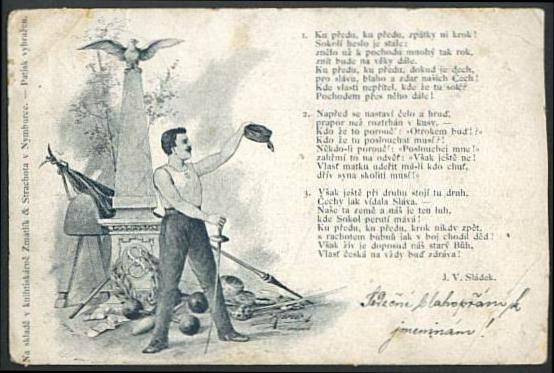 1. Ku předu, ku předu, zpátky ni krok!
Sokolí heslo je stále:
znělo už k pochodu mnohý tak rok,
znít bude na věky dále.
Ku předu, ku předu, dokud je dech,
pro slávu, blaho a zdar našich Čech!
Kde vlasti nepřítel, kde že tu sok?
Pochodem přes něho dále!
2. Napřed se nastaví čelo a hruď,
prapor než roztrhán v kusy, —
Kdo že to poroučí: »Otrokem buď!?«
Kdo že tu poslouchat musí?!
Někdo-li poroučí: »Poslouchej mne!«
zahřmí to na odvět: »Však ještě ne!
Vlasť matku udeřit má-li kdo chuť,
dřív syna skolití musí!«
3. Však ještě při druhu stojí tu druh,
Čechy jak vídala Sláva. —
Naše ta země a náš je ten luh,
kde Sokol perutí mává!
Ku předu, ku předu, krok nikdy zpět,
s rachotem bubnů jak v boj chodil děd!
Však živ je doposud náš starý Bůh,
Vlasť česká na vždy buď zdráva!
J. V. Sládek.
Srdeční blahopřání k
jmeninám!
Na skladě v knihtiskárně Zmatlík & Strachota v Nymburce. — Patisk vyhražen.